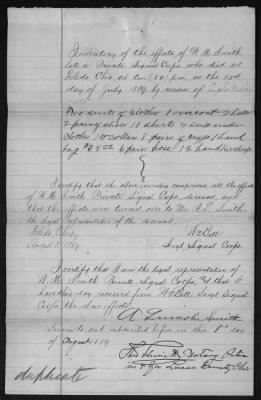 Inventory of the effects of W. M. Smith
late a Private, Signal Corps, who died at
Toledo Ohio at ten (10) p.m. on the 23d
day of July 1889 by reason of Typho Malaria
Fever
Two suits of clothes 1 overcoat 2 hats
2 pairs shoes 10 shirts 4 suits under
clothes 14 collars 8 pairs of cuffs 1 hand
bag 6 pair hose 12 handkerchiefs
I certify that the above inventory comprises all the effects
of W. M. Smith Private Signal Corps, deceased, and
that the effects were turned over to Mr A. L. Smith,
the legal representative of the deceased.
Toledo Ohio,
August 8, 1889
Sergt Signal Corps
I certify that I am the legal representative of
W. M. Smith Private Signal Corps, & that I
have this day received from Sergt Signal
Corps, the above effects.
A Lincoln Smith
Sworn to and subscribed before me this 8th day of
August 1889
Notary Public
in & for Lucas County Ohio
duplicate